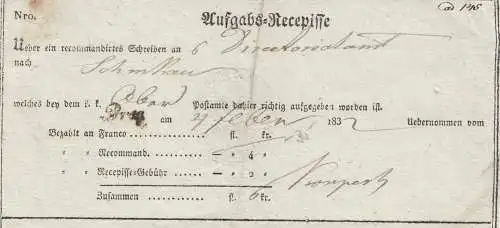 Nro. ad 146
Aufgabs-Recepisse
Ueber ein recommandirtes Schreiben an 6 Directorialamt
nach Schinkau
welches bey dem k. k. Ober Postamte dahier richtig aufgegeben worden ist.
Prag am 4 Feber 1832 Uebernommen vom
Bezahlt an Franco fl. kr.
„ „ Recommand. — „ 4 „
„ „ Recepisse-Gebühr — „ 2 „
Zusammen fl. 6 kr.